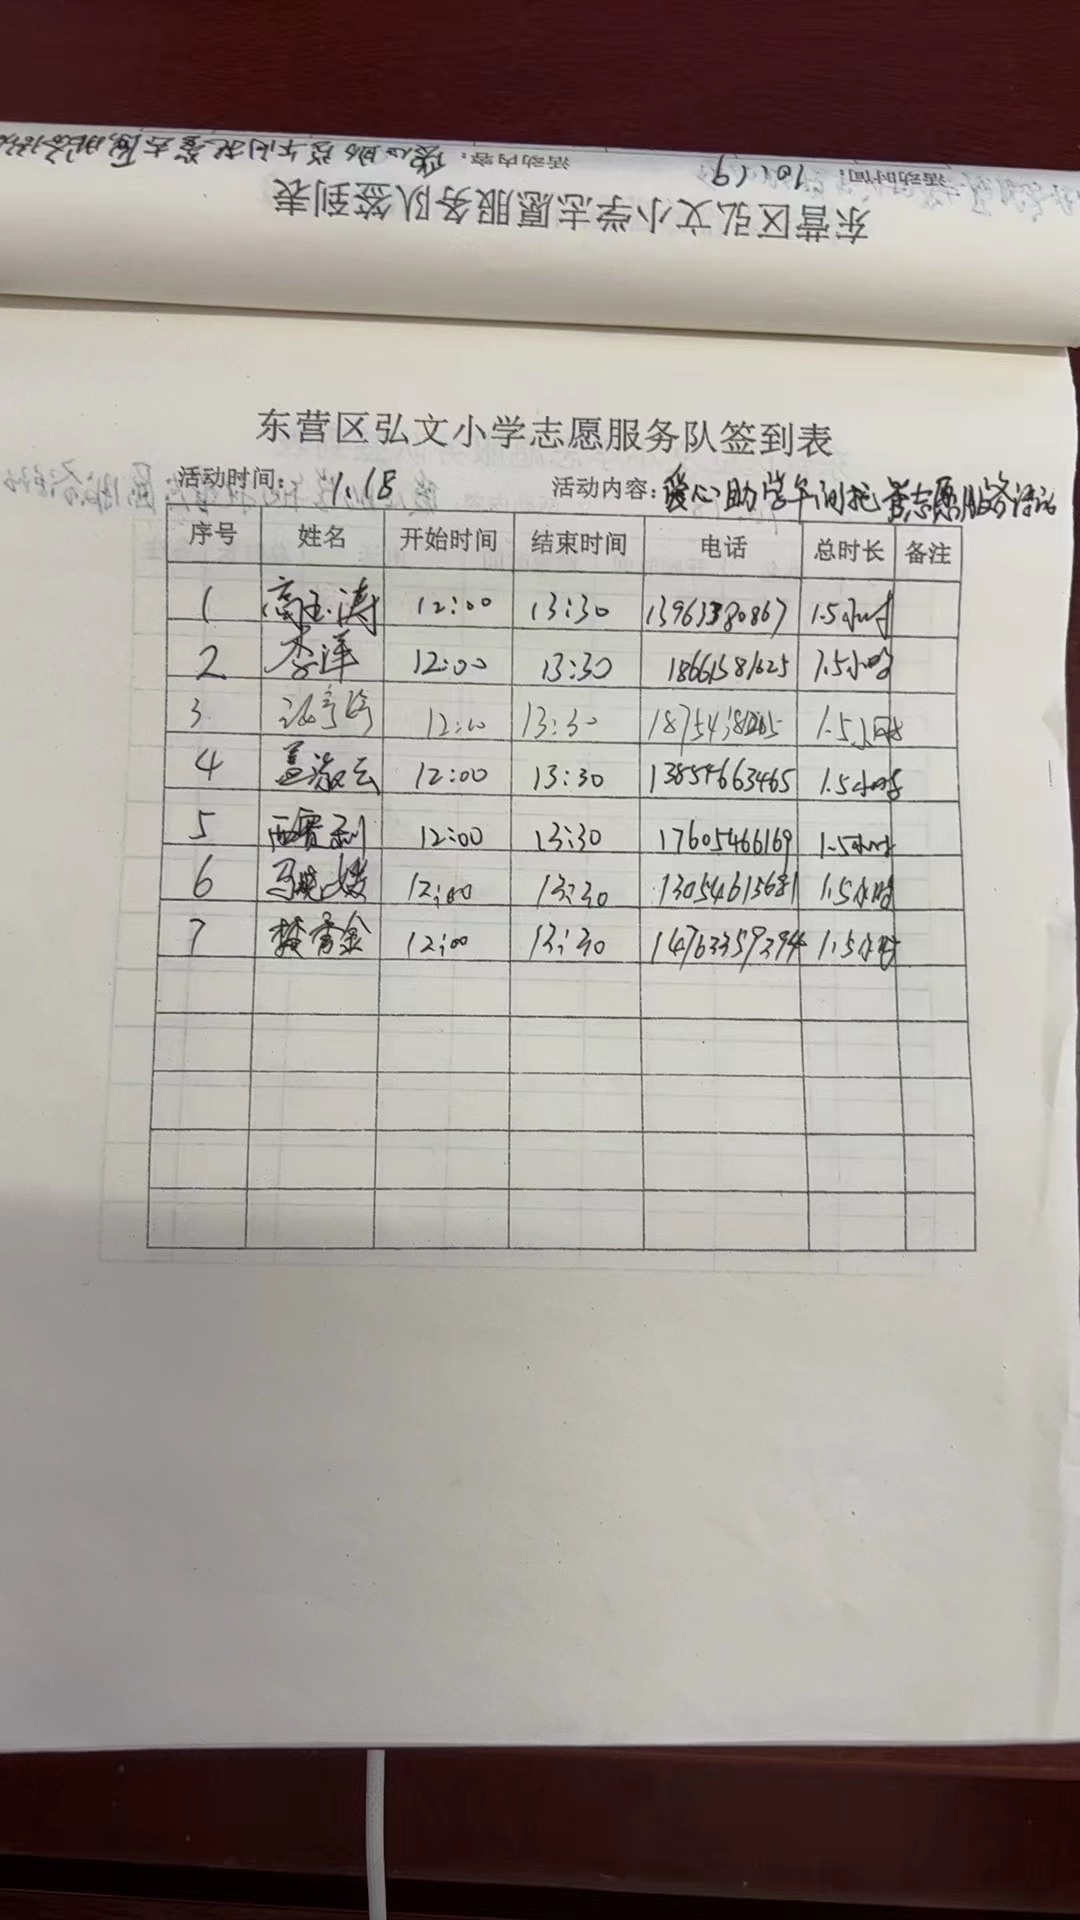 活动时间: 10.19 活动内容: 爱心助学午间托管志愿服务活动
东营区弘文小学志愿服务队签到表
东营区弘文小学志愿服务队签到表
活动时间: 11.18 活动内容: 爱心助学午间托管志愿服务活动
序号 姓名 开始时间 结束时间 电话 总时长 备注
1 高玉涛 12:00 13:30 1.5小时
2 李洋 12:00 13:30 18661381625 1.5小时
3. 12:00 13:30 1.5小时
4 盖淑云 12:00 13:30 13854663465 1.5小时
5 12:00 13:30 17605466169 1.5小时
6 马晓媛 12:00 13:30 1.5小时
7 12:00 13:30 14763359394 1.5小时